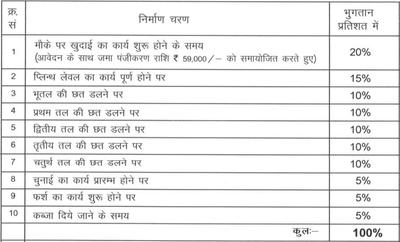 क्र. सं निर्माण चरण भुगतान प्रतिशत में
1 मौके पर खुदाई का कार्य शुरू होने के समय 20%
(आवेदन के साथ जमा पंजीकरण राशि ₹ 59,000/– को समायोजित करते हुए)
2 प्लिन्थ लेवल का कार्य पूर्ण होने पर 15%
3 भूतल की छत डलने पर 10%
4 प्रथम तल की छत डलने पर 10%
5 द्वितीय तल की छत डलने पर 10%
6 तृतीय तल की छत डलने पर 10%
7 चतुर्थ तल की छत डलने पर 10%
8 चुनाई का कार्य प्रारम्भ होने पर 5%
9 फर्श का कार्य शुरू होने पर 5%
10 कब्जा दिये जाने के समय 5%
कुलः– 100%